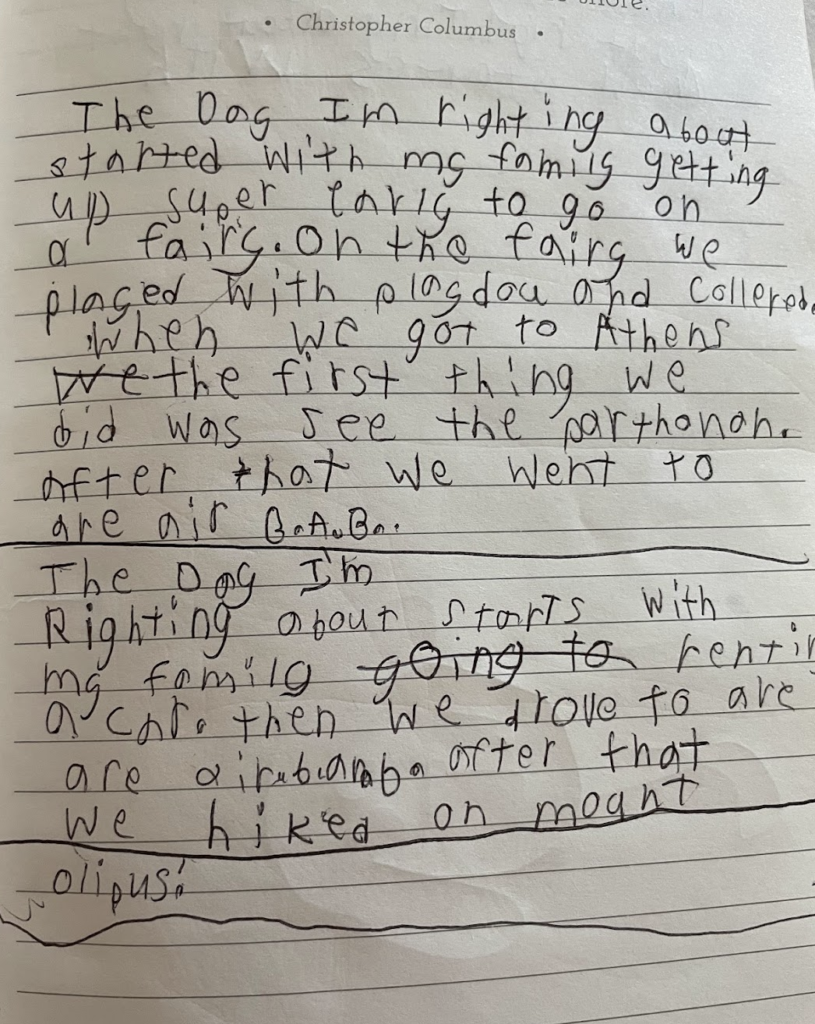 • Christopher Columbus •
The Day Im righting about
started with my family getting
up super early to go on
a fairy. On the fairy we
played with playdou and collered.
when we got to Athens
we the first thing we
did was see the parthonan.
after that we went to
are air B.A.B..
The Day I'm
Righting about starts with
my family going to
a car. then we drove to are
are after that
we hiked on moant
olipus!